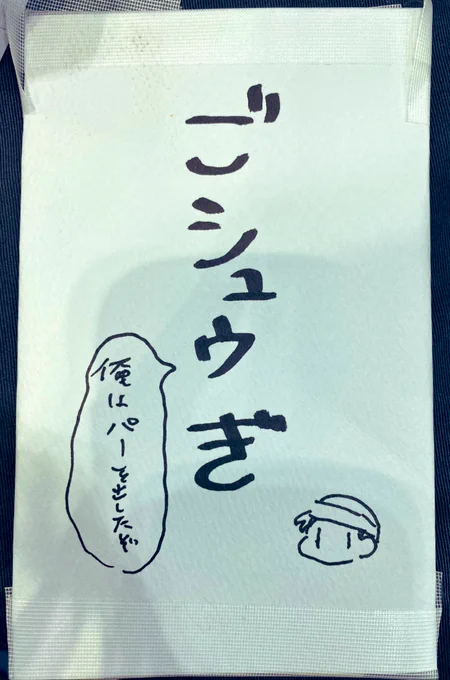 ごシュウぎ
俺はパーを出したぞ